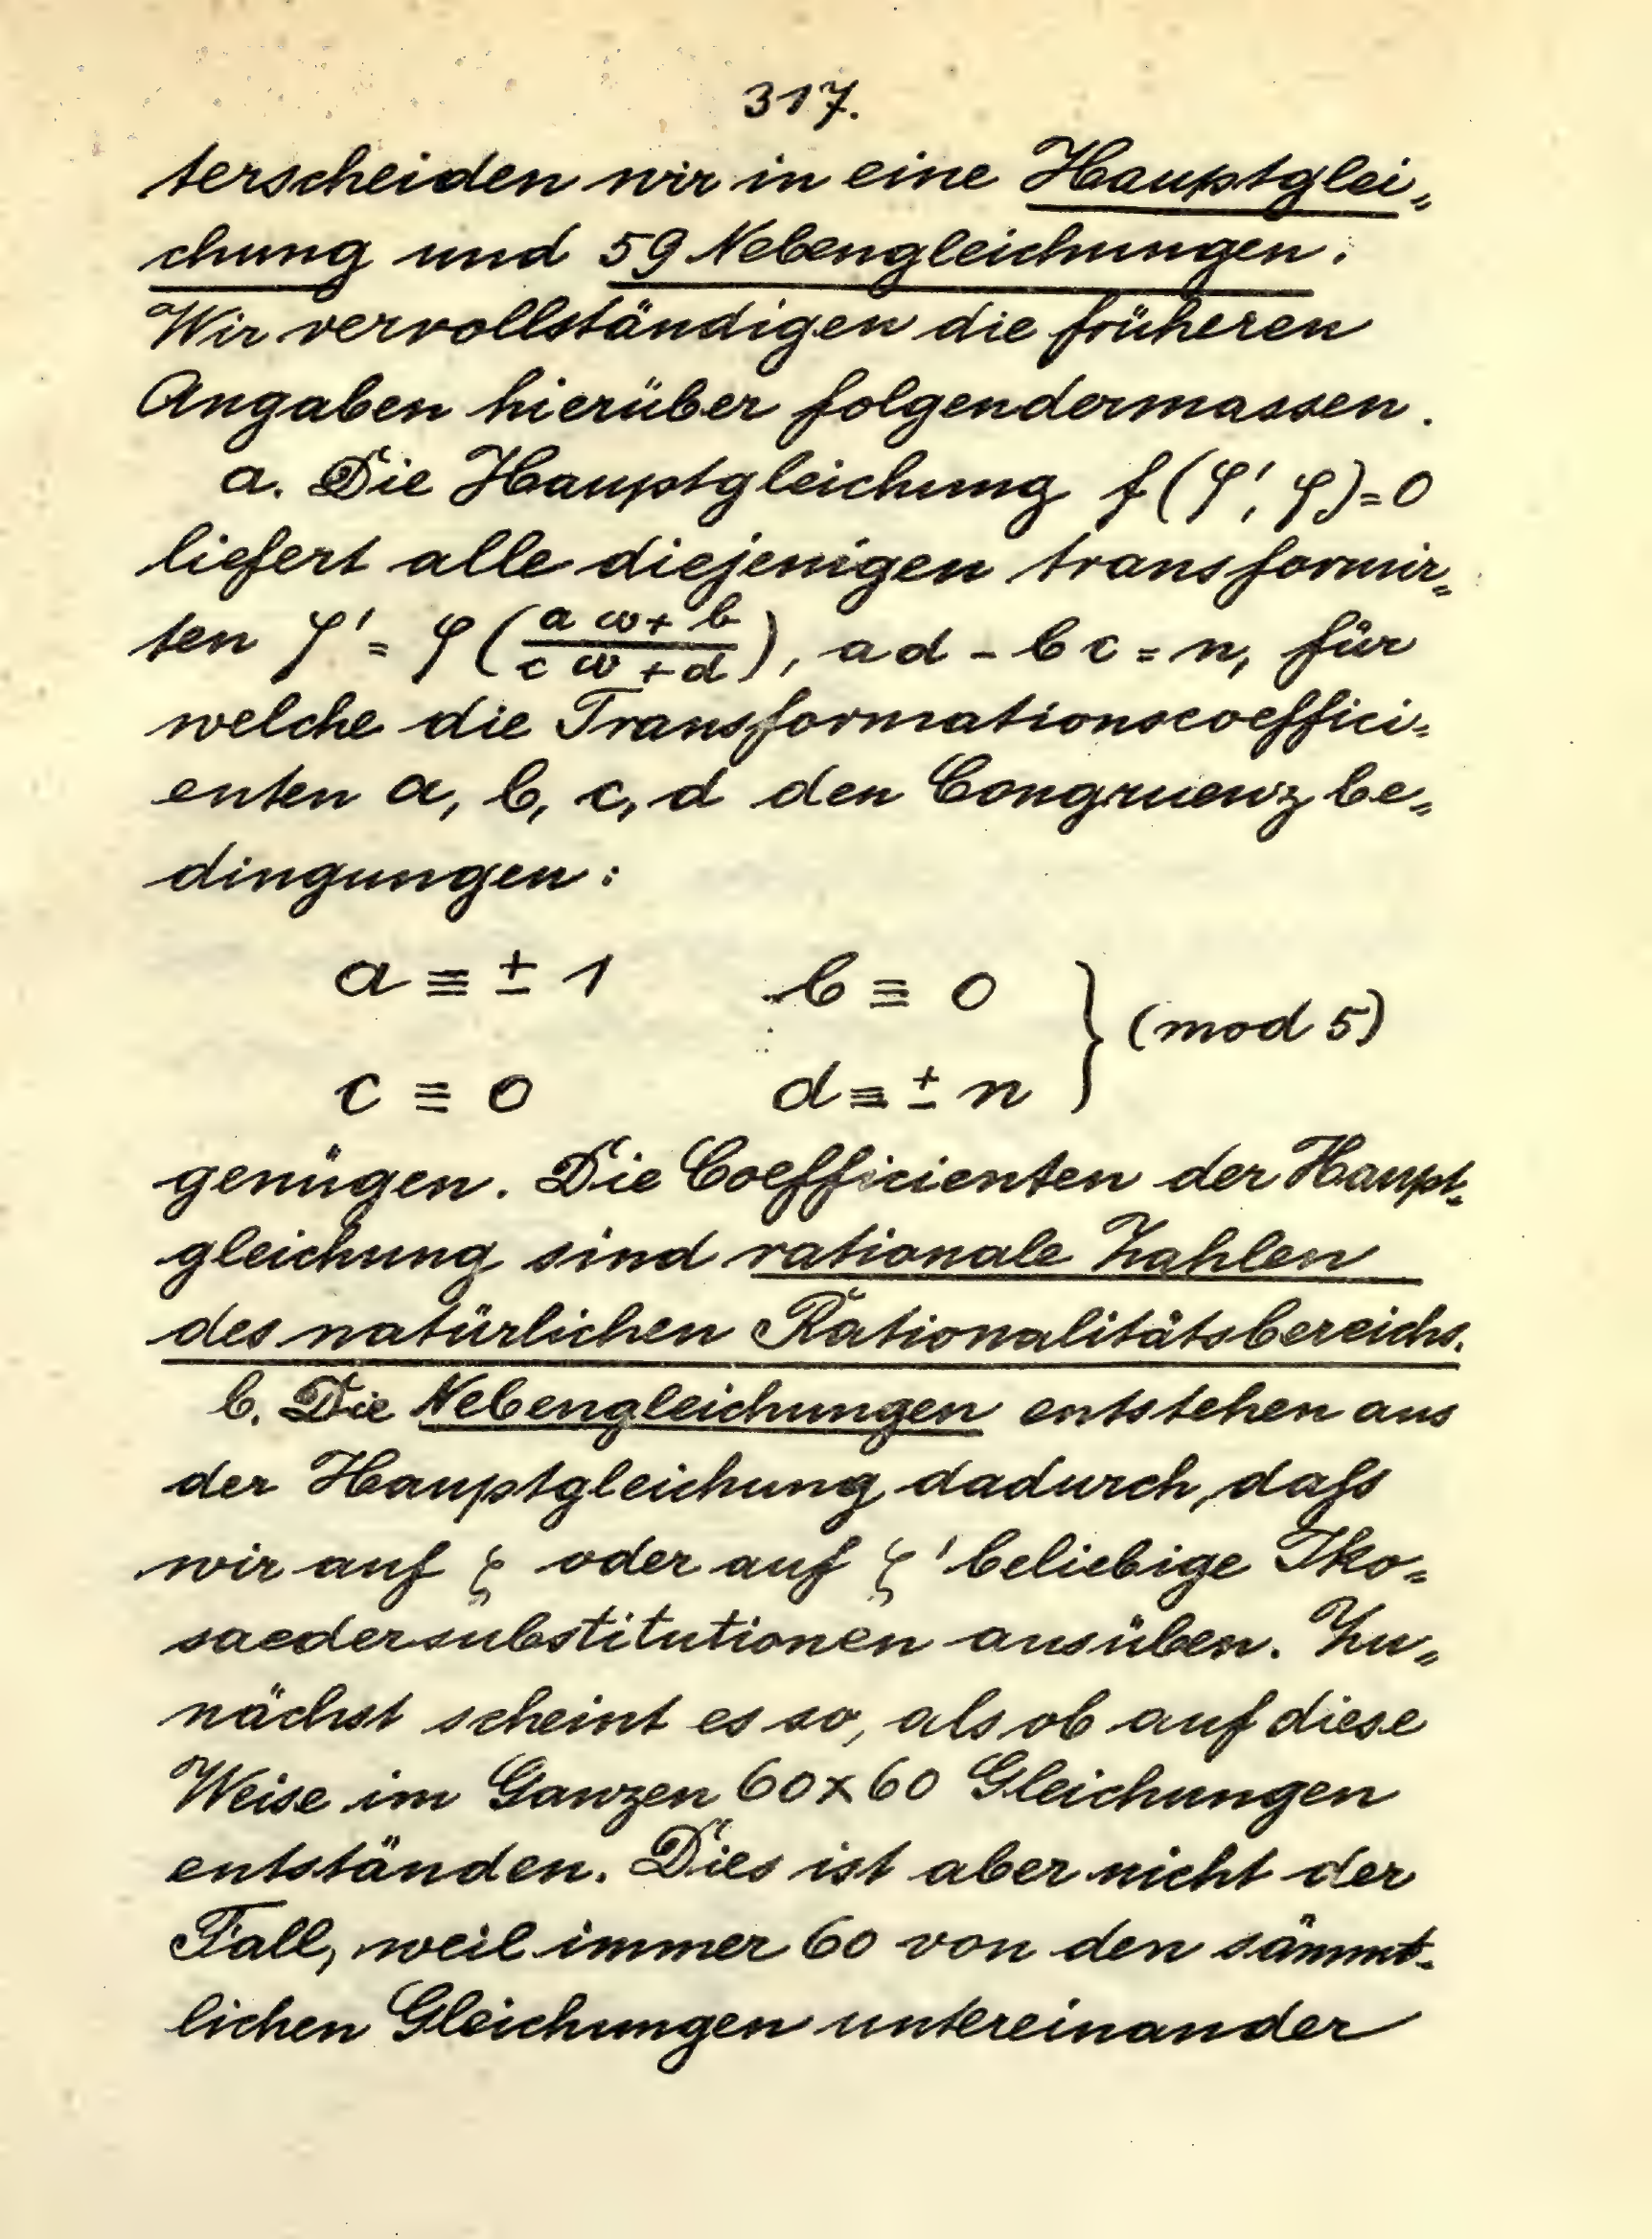 317.
terscheiden wir in eine Hauptglei„
chung und 59 Nebengleichungen.
Wir vervollständigen die früheren
Angaben hierüber folgendermassen.
a. Die Hauptgleichung f(ζ', ζ)=0
liefert alle diejenigen transformir„
ten ζ' = ζ(\frac{aω+b}{cω+d}), ad - bc = n, für
welche die Transformationscoeffici„
enten a, b, c, d den Congruenzbe„
dingungen:
a ≡ ± 1 b ≡ 0 } (mod 5)
c ≡ 0 d ≡ ± n
genügen. Die Coefficienten der Haupt„
gleichung sind rationale Zahlen
des natürlichen Rationalitätsbereichs.
b. Die Nebengleichungen entstehen aus
der Hauptgleichung dadurch, daſs
wir auf ζ oder auf ζ' beliebige Iko„
saedersubstitutionen ausüben. Zu„
nächst scheint es so, als ob auf diese
Weise im Ganzen 60×60 Gleichungen
entständen. Dies ist aber nicht der
Fall, weil immer 60 von den sämmt„
lichen Gleichungen untereinander